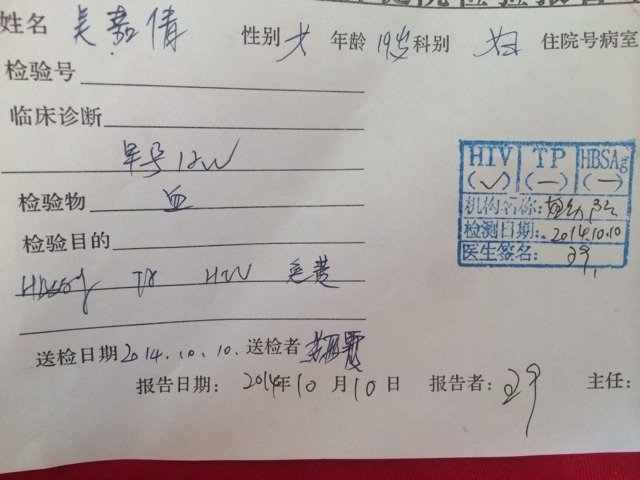 姓名 吴嘉倩 性别 女 年龄 19岁 科别 妇 住院号病室
检验号
临床诊断
早孕12W
检验物 血
检验目的
HBsAg TP HIV 免费
送检日期 2014.10.10. 送检者
报告日期: 2014年10月10日 报告者: 主任:
HIV TP HBSAg
(✓) (—) (—)
机构名称:
检测日期: 2014.10.10
医生签名: